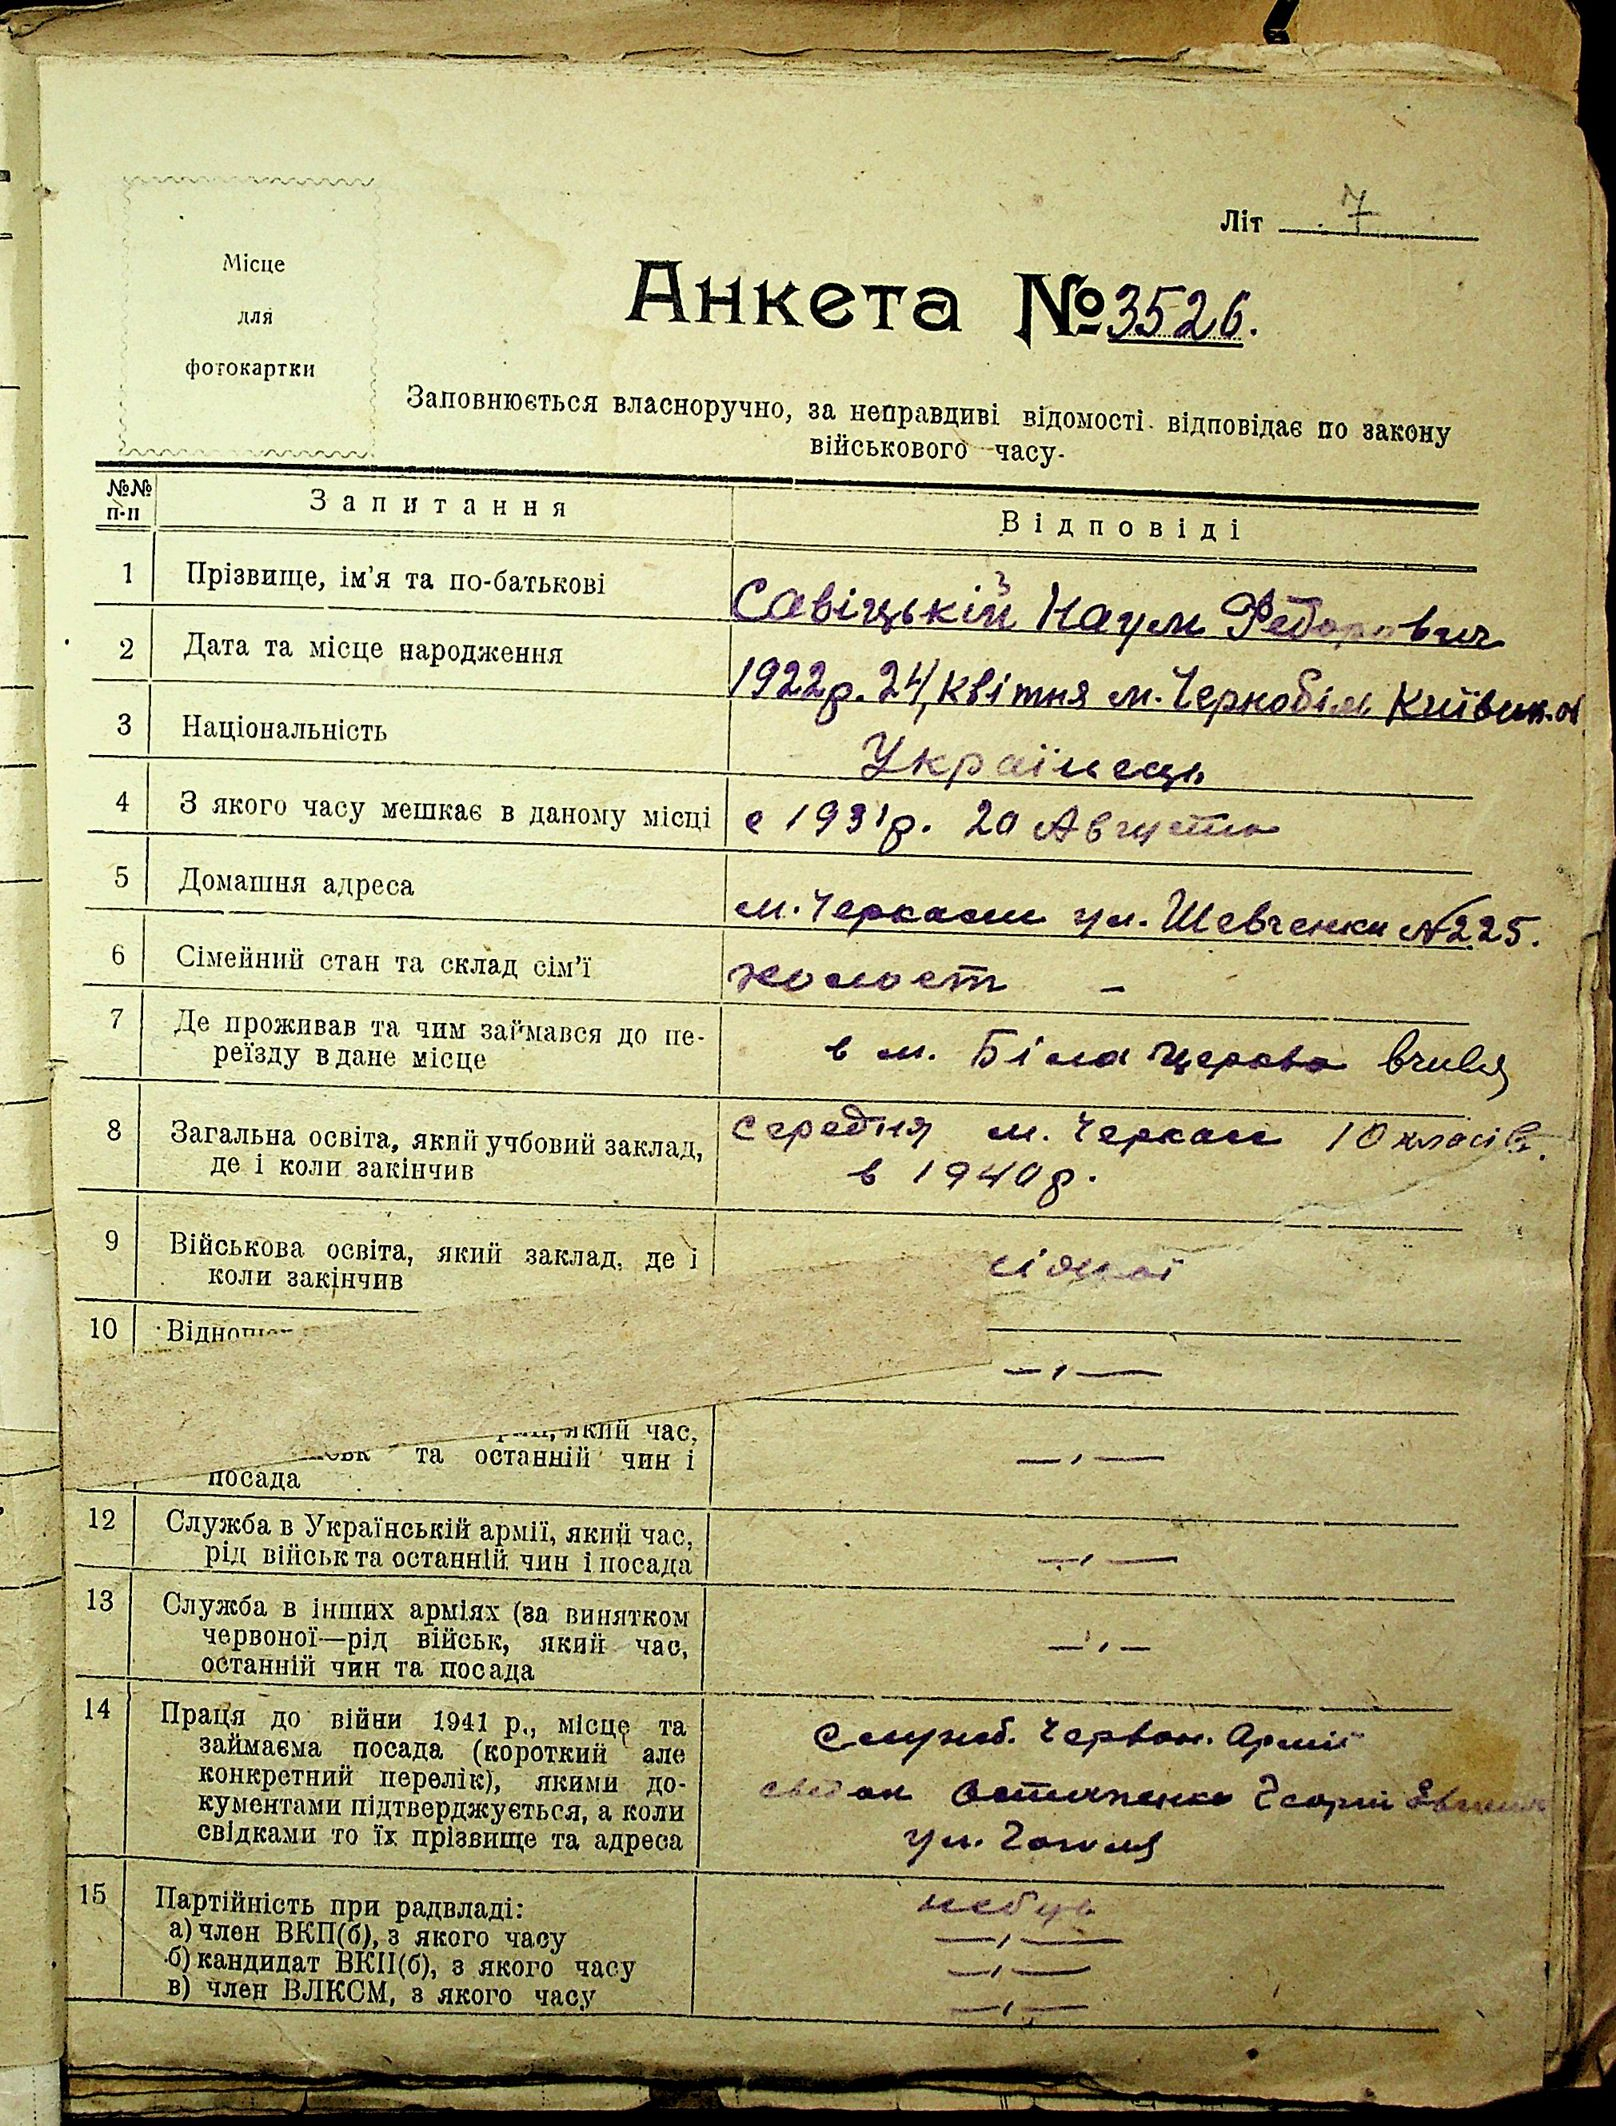 Літ 7
Місце
для
фотокартки
Анкета № 3526.
Заповнюється власноручно, за неправдиві відомості відповідає по закону
військового часу.
№№ п-п Запитання Відповіді
1 Прізвище, ім'я та по-батькові Савіцький Наум Федорович
2 Дата та місце народження 1922р. 24, квітня м. Чернобіль Київськ. об
3 Національність Українець
4 З якого часу мешкає в даному місці с 1931р. 20 Августа
5 Домашня адреса м. Черкаси ул. Шевченки №225.
6 Сімейний стан та склад сім'ї холост —
7 Де проживав та чим займався до пе-
реїзду в дане місце в м. Біла Церква вчився
8 Загальна освіта, який учбовий заклад, середня м. Черкаси 10 класів.
де і коли закінчив в 1940р.
9 Військова освіта, який заклад, де і
коли закінчив
10
— „ —
який час,
та останній чин і — „ —
посада
12 Служба в Українській армії, який час,
рід військ та останній чин і посада — „ —
13 Служба в інших арміях (за винятком
червоної—рід військ, який час, — „ —
останній чин та посада
14 Праця до війни 1941 р., місце та Служб. Червон. Армії
займаєма посада (короткий але
конкретний перелік), якими до-
кументами підтверджується, а коли
свідками то їх прізвище та адреса ул. Гоголя
15 Партійність при радвладі: небув
а) член ВКП(б), з якого часу — „ —
б) кандидат ВКП(б), з якого часу — „ —
в) член ВЛКСМ, з якого часу — „ —